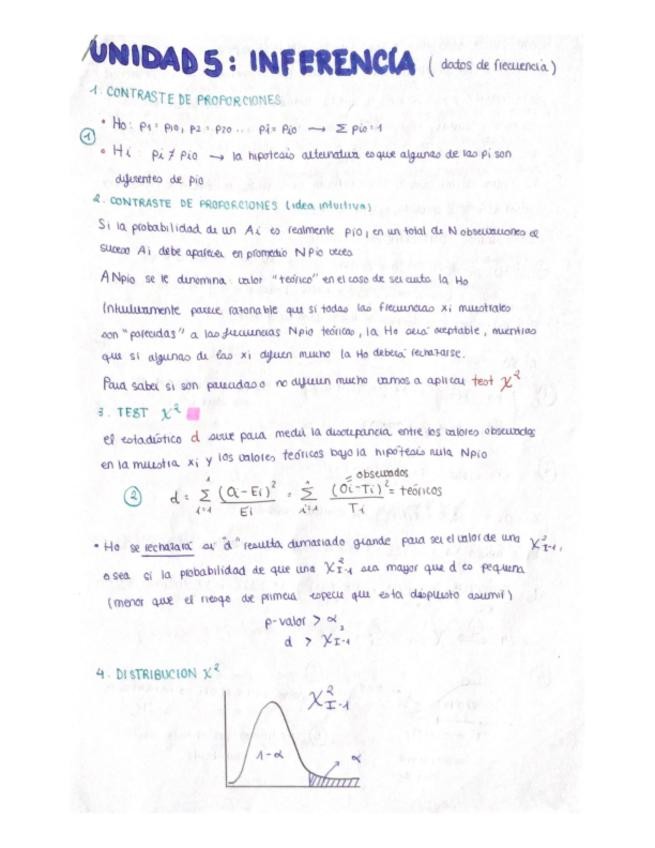 UNIDAD 5: INFERENCÍA (datos de frecuencia)
1. CONTRASTE DE PROPORCIONES
• Ho: p1 = p10, p2 = p20 ... pi = pio → Σ pio = 1
①
• Hi: pi ≠ pio → la hipotesis alternativa es que algunas de las pi son
diferentes de pio
2. CONTRASTE DE PROPORCIONES (idea intuitiva)
Si la probabilidad de un Ai es realmente pio, en un total de N observaciones el
suceso Ai debe aparecer en promedio Npio veces
A Npio se le denomina valor "teórico" en el caso de ser cierta la Ho
Intuitivamente parece razonable que si todas las frecuencias xi muestrales
son "parecidas" a las frecuencias Npio teóricas, la Ho sera aceptable, mientras
que si algunas de las xi difieren mucho la Ho deberá rechazarse.
Para saber si son parecidas o no difieren mucho vamos a aplicar test χ²
3. TEST χ²
el estadístico d sirve para medir la discrepancia entre los valores observados
en la muestra xi y los valores teóricos bajo la hipótesis nula Npio
② d = Σ i=1 (Oi-Ei)² / Ei = Σ i=1 (Oi-Ti)² / Ti
= observados
= teóricos
• Ho se rechazará si "d" resulta demasiado grande para ser el valor de una χ²I-1,
o sea si la probabilidad de que una χ²I-1 sea mayor que d es pequeña
(menor que el riesgo de primera especie que esta dispuesto asumir)
p-valor > α
d > χ²I-1
4. DISTRIBUCION χ²
χ²I-1
1-α
α